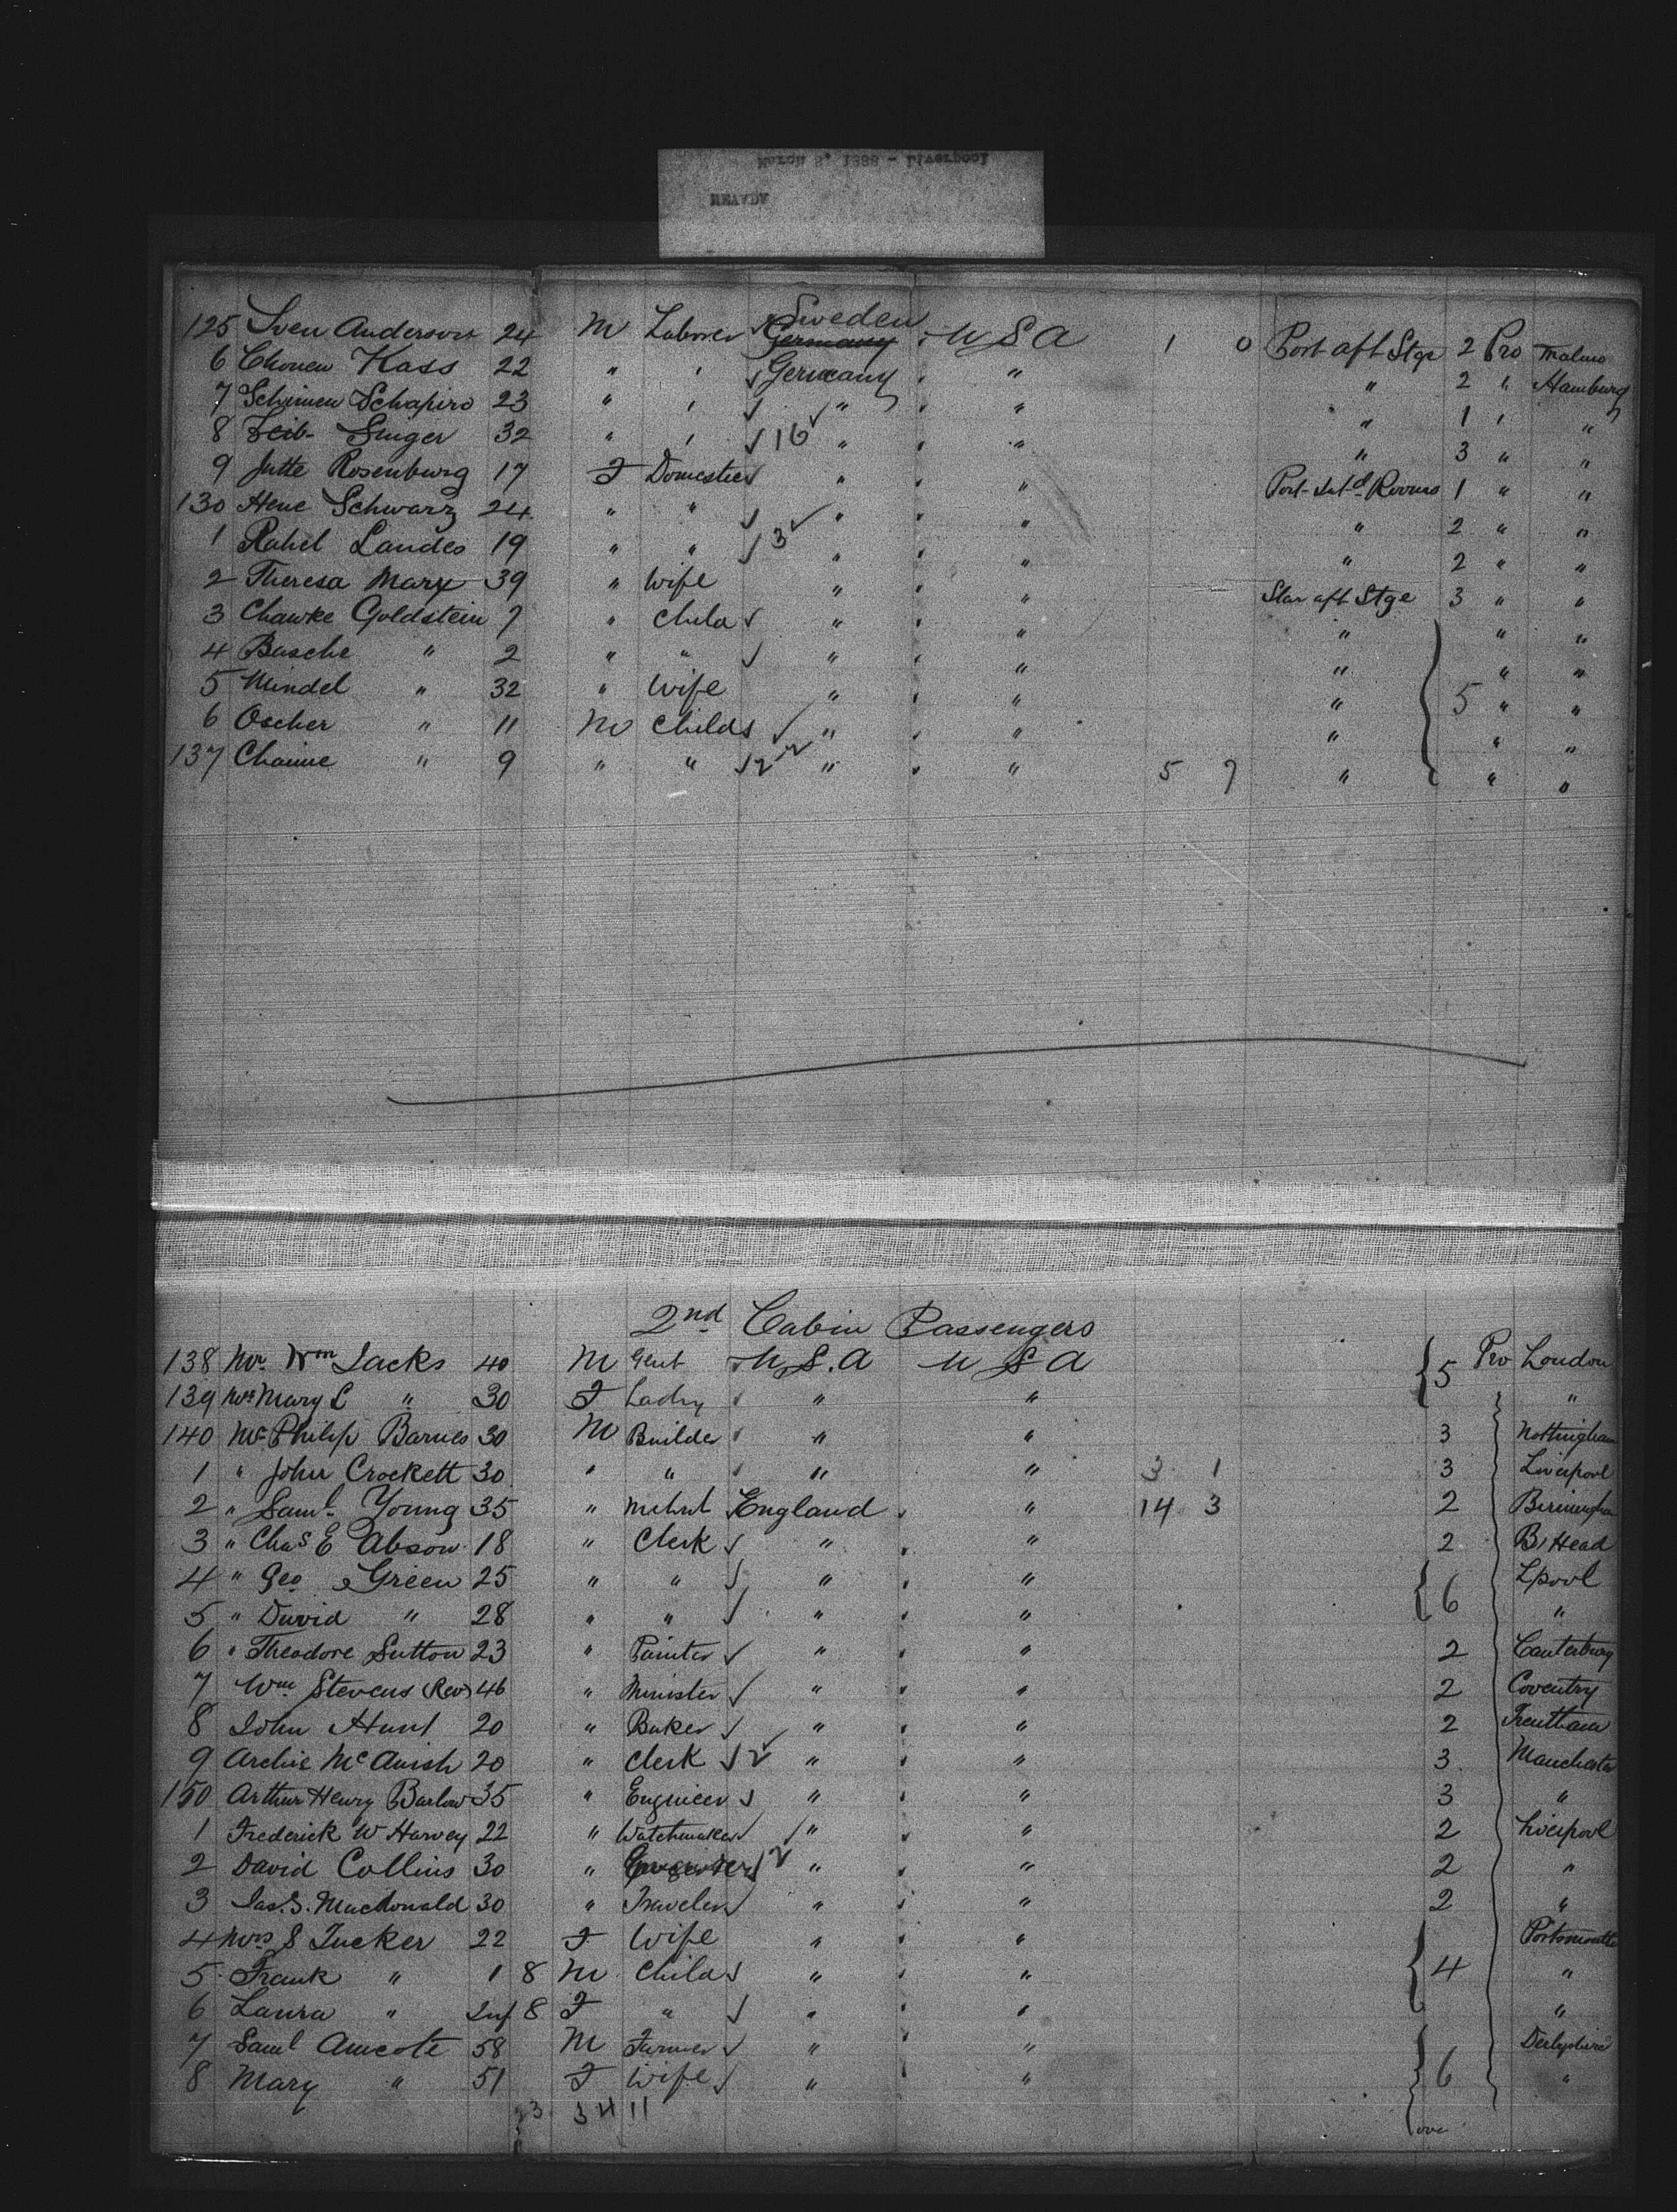 March 8, 1888 - Liverpool
125 Sven Anderson 24 M Laborer Sweden Germany U S A 1 0 Port aft Stge 2 Pro Malmo
6 Chonen Kass 22 " " Germany " " 2 " Hamburg
7 Schimen Schapiro 23 " " " " " 1 " "
8 Leib Singer 32 " " 16 " " " 3 " "
9 Jutte Rosenburg 17 F Domestic " " Port Intd Rooms 1 " "
130 Hene Schwarz 24 " " " " " 2 " "
1 Rahel Landes 19 " " 3 " " " 2 " "
2 Theresa Marx 39 " Wife " " Star aft Stge 3 " "
3 Chawke Goldstein 7 " Child " " " " "
4 Basche " 2 " " " " " " "
5 Mindel " 32 " Wife " " " 5 " "
6 Oscher " 11 M Child " " " " "
137 Chaime " 9 " " 2 " " 5 7 " " "
2nd Cabin Passengers
138 Mr Wm Jacks 40 M Gent U.S.A U S A 5 Pro London
139 Mrs Mary L " 30 F Lady " " "
140 Mr Philip Barnes 30 M Builder " " 3 Nottingham
1 " John Crockett 30 " " " " 3 1 3 Liverpool
2 " Saml Young 35 " Mchnt England " 14 3 2 Birmingham
3 " Chas E Abson 18 " Clerk " " 2 B/Head
4 " Geo Green 25 " " " " 6 Lpool
5 " David " 28 " " " " "
6 " Theodore Sutton 23 " Painter " " 2 Canterbury
7 Wm Stevens (Rev) 46 " Minister " " 2 Coventry
8 John Hunt 20 " Baker " " 2 Trentham
9 Archie McAnish 20 " Clerk 2 " " 3 Manchester
150 Arthur Henry Barlow 35 " Engineer " " 3 "
1 Frederick W Harvey 22 " Watchmaker " " 2 Liverpool
2 David Collins 30 " 2 " " 2 "
3 Jas. S. MacDonald 30 " Traveler " " 2 "
4 Mrs S Tucker 22 F Wife " " 4 Portsmouth
5 Frank " 1 8 M Child " " "
6 Laura " Inf 8 F " " " "
7 Saml Amcote 58 M Farmer " " 6 Derbyshire
8 Mary " 51 F Wife " " "
3 34 11